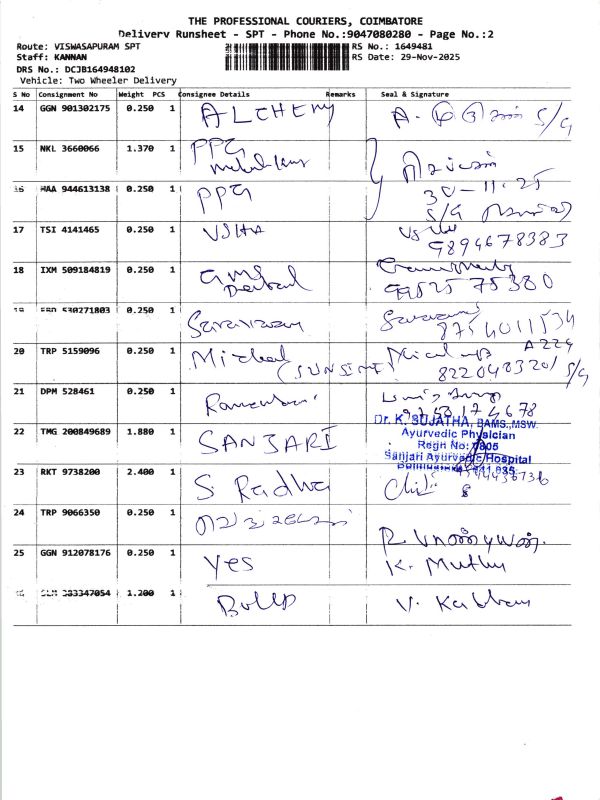 THE PROFESSIONAL COURIERS, COIMBATORE
Delivery Runsheet - SPT - Phone No.:9047080280 - Page No.:2
Route: VISWASAPURAM SPT RS No.: 1649481
Staff: KANNAN RS Date: 29-Nov-2025
DRS No.: DCJB164948102
Vehicle: Two Wheeler Delivery
S No Consignment No Weight PCS Consignee Details Remarks Seal & Signature
14 GGN 901302175 0.250 1 ALCHEMY S/G
15 NKL 3660066 1.370 1 PPG
30-11-25
16 HAA 944613138 0.250 1 PPG S/G
17 TSI 4141465 0.250 1 USHA Usha
9894678383
18 IXM 509184819 0.250 1 GMS
Dental 9952575380
19 530271803 0.250 1 Saravanan
8754011534
20 TRP 5159096 0.250 1 Michael (SUNSINE) A224
S/G
21 DPM 528461 0.250 1
22 TMG 200849689 1.880 1 SANJARI
Dr. K. SUJATHA, BAMS.,MSW.
Ayurvedic Physician
Regn No:
Sanjari Ayurvedic Hospital
23 RKT 9738200 2.400 1 S. Radha
24 TRP 9066350 0.250 1
R. பாண்டியன்.
25 GGN 912078176 0.250 1 Yes K. Muthu
383347054 1.200 1